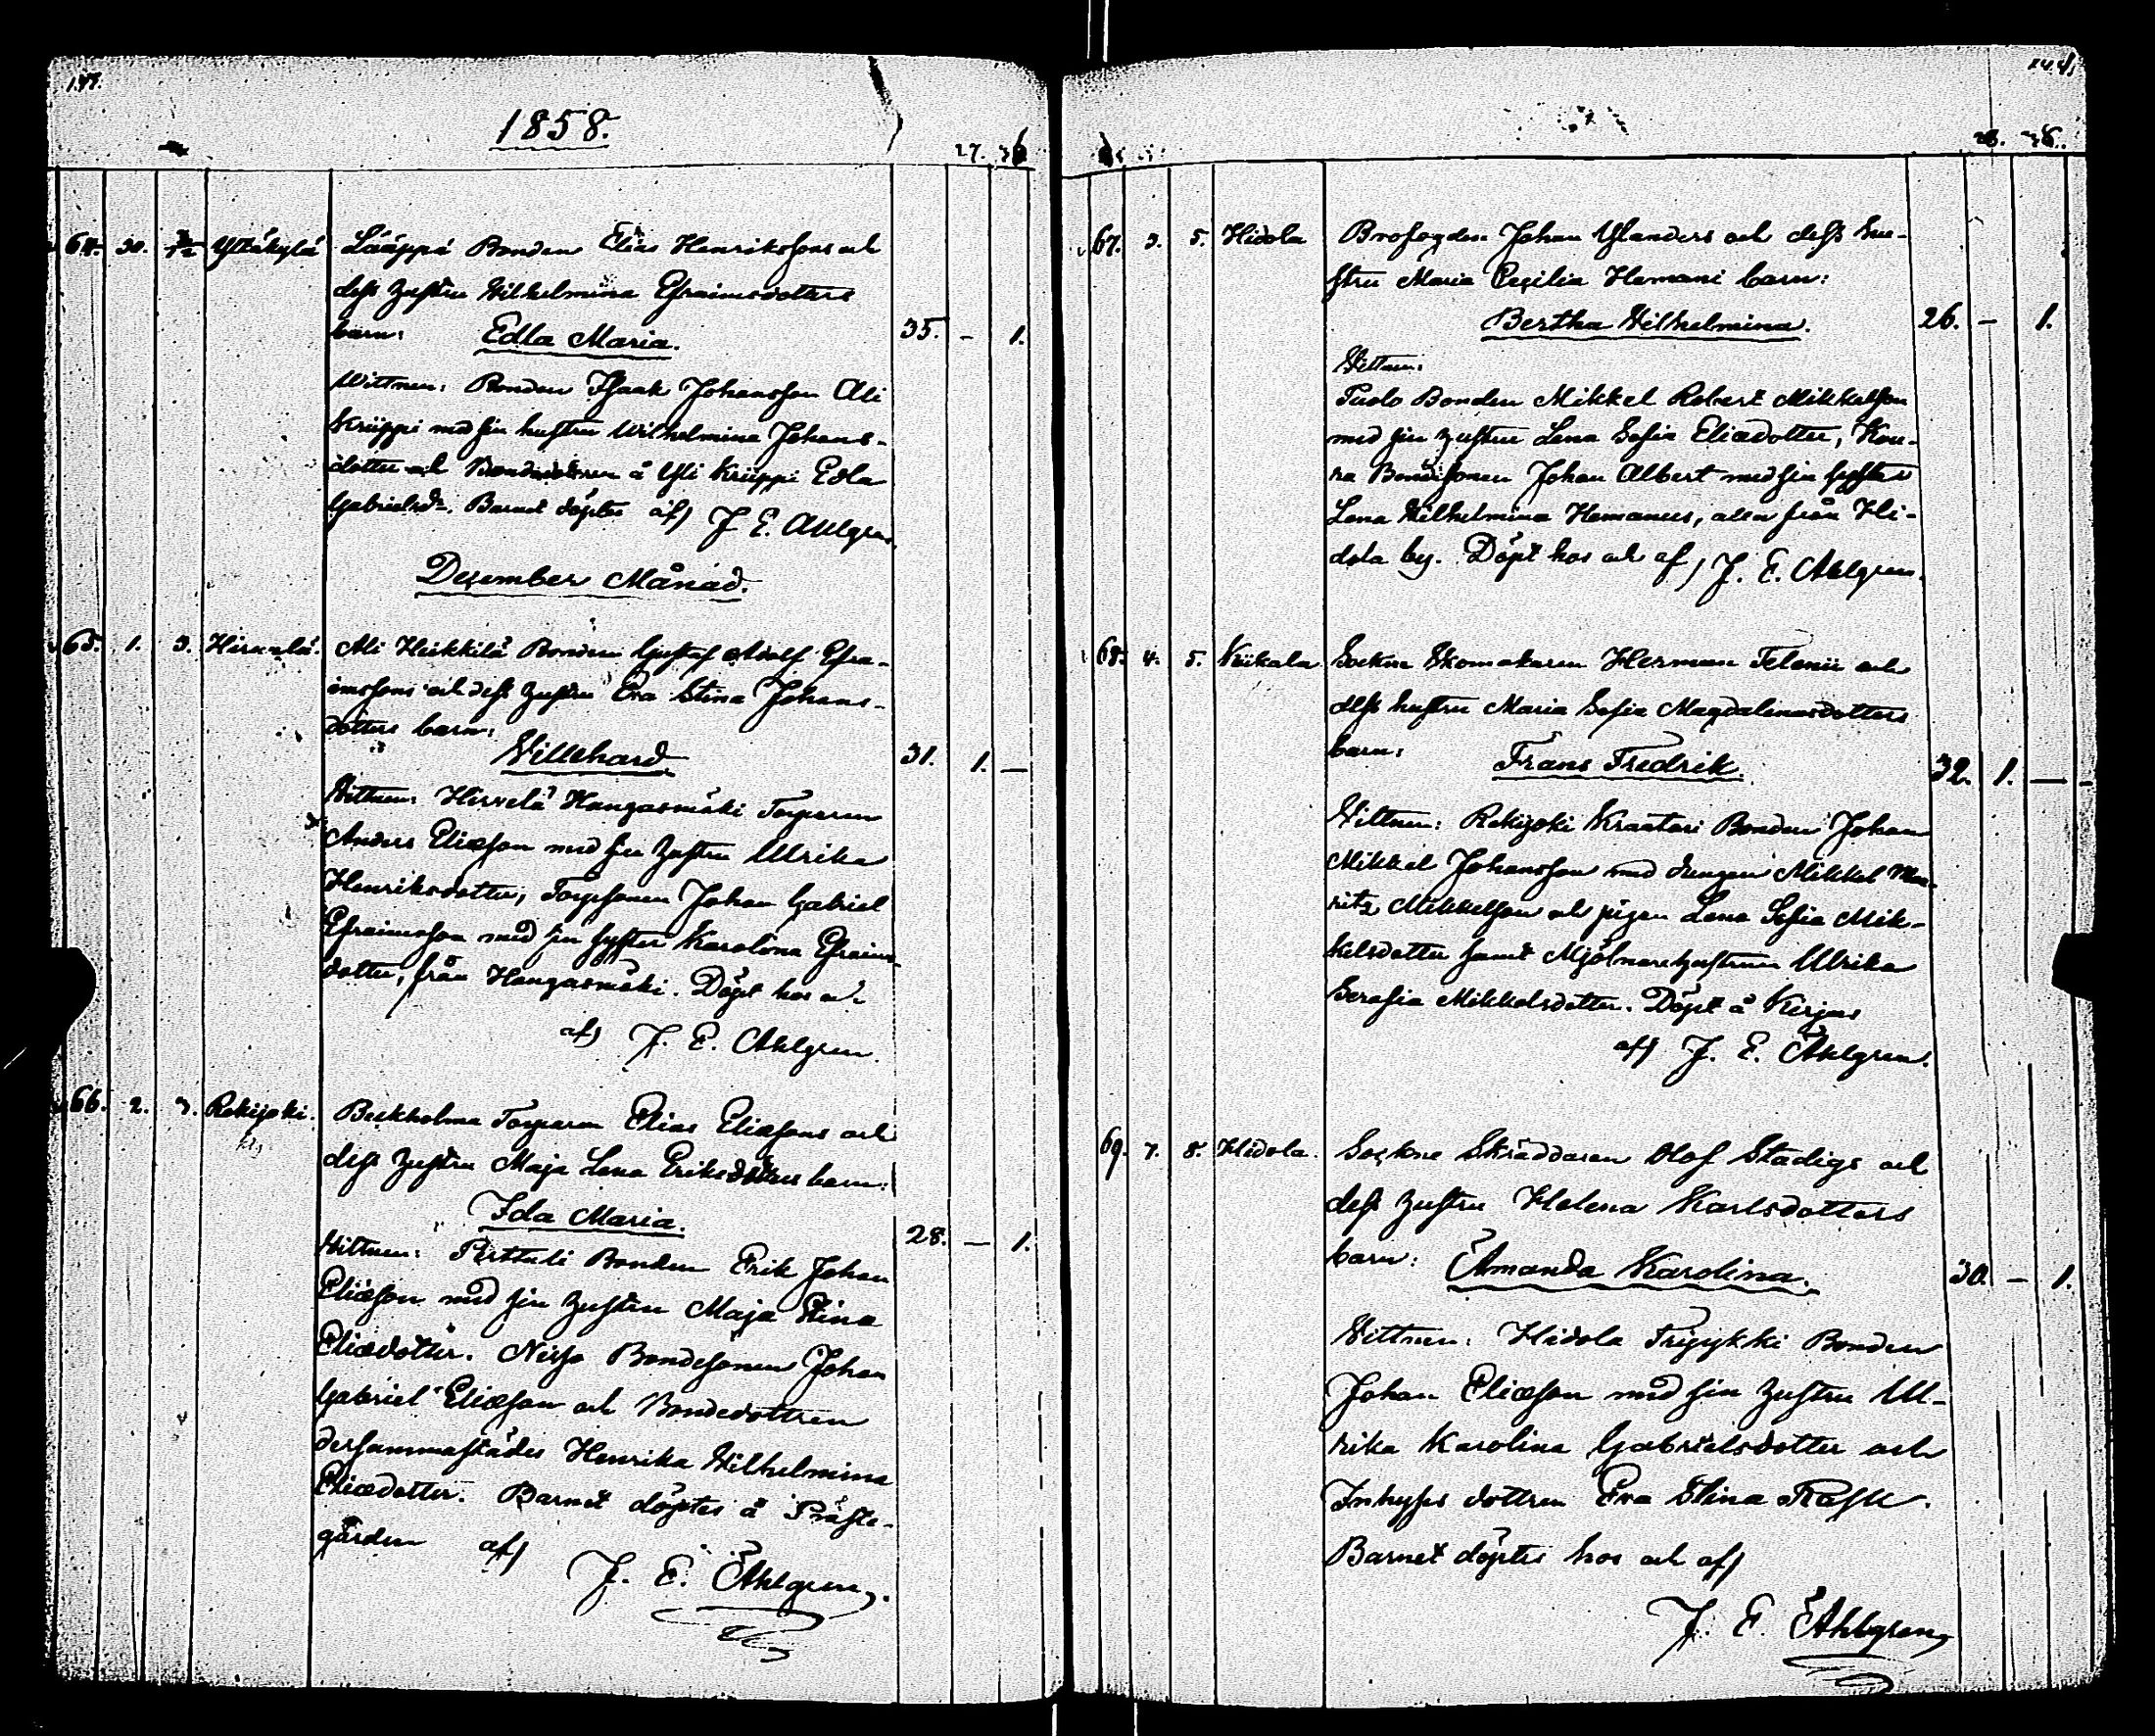 147.
1858.
27. 36
64. 30. 3/12 Yltäkylä Lääppä Bonden Elias Henrikssons och
dess hustru Wilhelmina Efraimsdotters
barn: Edla Maria. 35. - 1.
Wittnen: Bonden Isaak Johansson Ali
Krüppi med sin hustru Wilhelmina Johans-
dotter och Bondedottren å Yli Krüppi Edla
Gabrielsdr. Barnet döptes af J. E. Ahlgren.
December Månad.
65. 1. 3. Hirvelä. Ali Heikkilä Bonden Gustaf Adolf Efra-
imssons och dess hustru Eva Stina Johans-
dotters barn:
Willehard 31. 1. —
Wittnen: Hirvelä Hangasmäki Torparen
Anders Eliæson med sin hustru Ulrika
Henriksdotter, Torpsonen Johan Gabriel
Efraimsson med sin syster Karolina Efraims-
dotter, från Hangasmäki. Döpt hos och
af J. E. Ahlgren.
66. 2. 3. Rekijoki. Beckholma Torparen Elias Eliæsons och
dess hustru Maja Lena Eriksdotters barn:
Ida Maria. 28. — 1.
Wittnen: Perttuli Bonden Erik Johan
Eliæson med sin hustru Maja Stina
Eliædotter. Bondesonen Johan
Gabriel Eliæson och Bondedottren
dersammastädes Henrika Wilhelmina
Eliædotter. Barnet döptes å Präste-
gården af
J. E. Ahlgren.
28. 38.
67. 3. 5. Hidola Brofogden Johan Ylanders och dess hu-
stru Maria Cecilia Hemani barn:
Bertha Wilhelmina. 26. — 1.
Wittnen:
Bonden Mikkel Robert Mikkelson
med sin hustru Lena Sofia Eliædotter, Kou-
ra Bondesonen Johan Albert med sin syster
Lena Wilhelmina Hemanus, alla från Hi-
dola by. Döpt hos och af J. E. Ahlgren.
68. 4. 5. Kiikala Sockne Skomakaren Herman Telenii och
dess hustru Maria Sofia Magdalenasdotters
barn: Frans Fredrik. 32. 1. —
Wittnen: Rekijoki Kraatari Bonden Johan
Mikkel Johansson med drengen Mikkel Mau-
ritz Mikkelson och pigan Lena Sofia Mik-
kelsdotter samt Mjölnarehustrun Ulrika
Serafia Mikkelsdotter. Döpt å Kerjas
af J. E. Ahlgren.
69. 7. 8. Hidola. Sockne Skräddaren Olof Stadigs och
dess hustru Helena Karlsdotters
barn: Amanda Karolina. 30. — 1.
Wittnen: Hidola Bonden
Johan Eliæson med sin hustru Ul-
rika Karolina Gabrielsdotter och
Inhyses dottren Eva Stina Rask.
Barnet döptes hos och af
J. E. Ahlgren